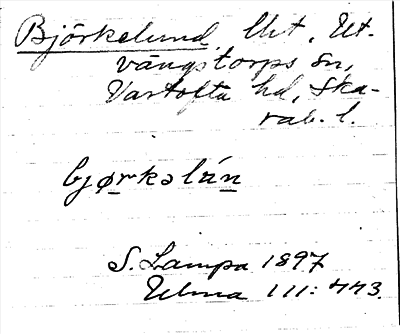 Björkelund, lht, Ut-
vängstorps sn,
Vartofta hd, Ska-
rab. l.
bjørkəlún
S. Lampa 1897
Ulma 111: 443.